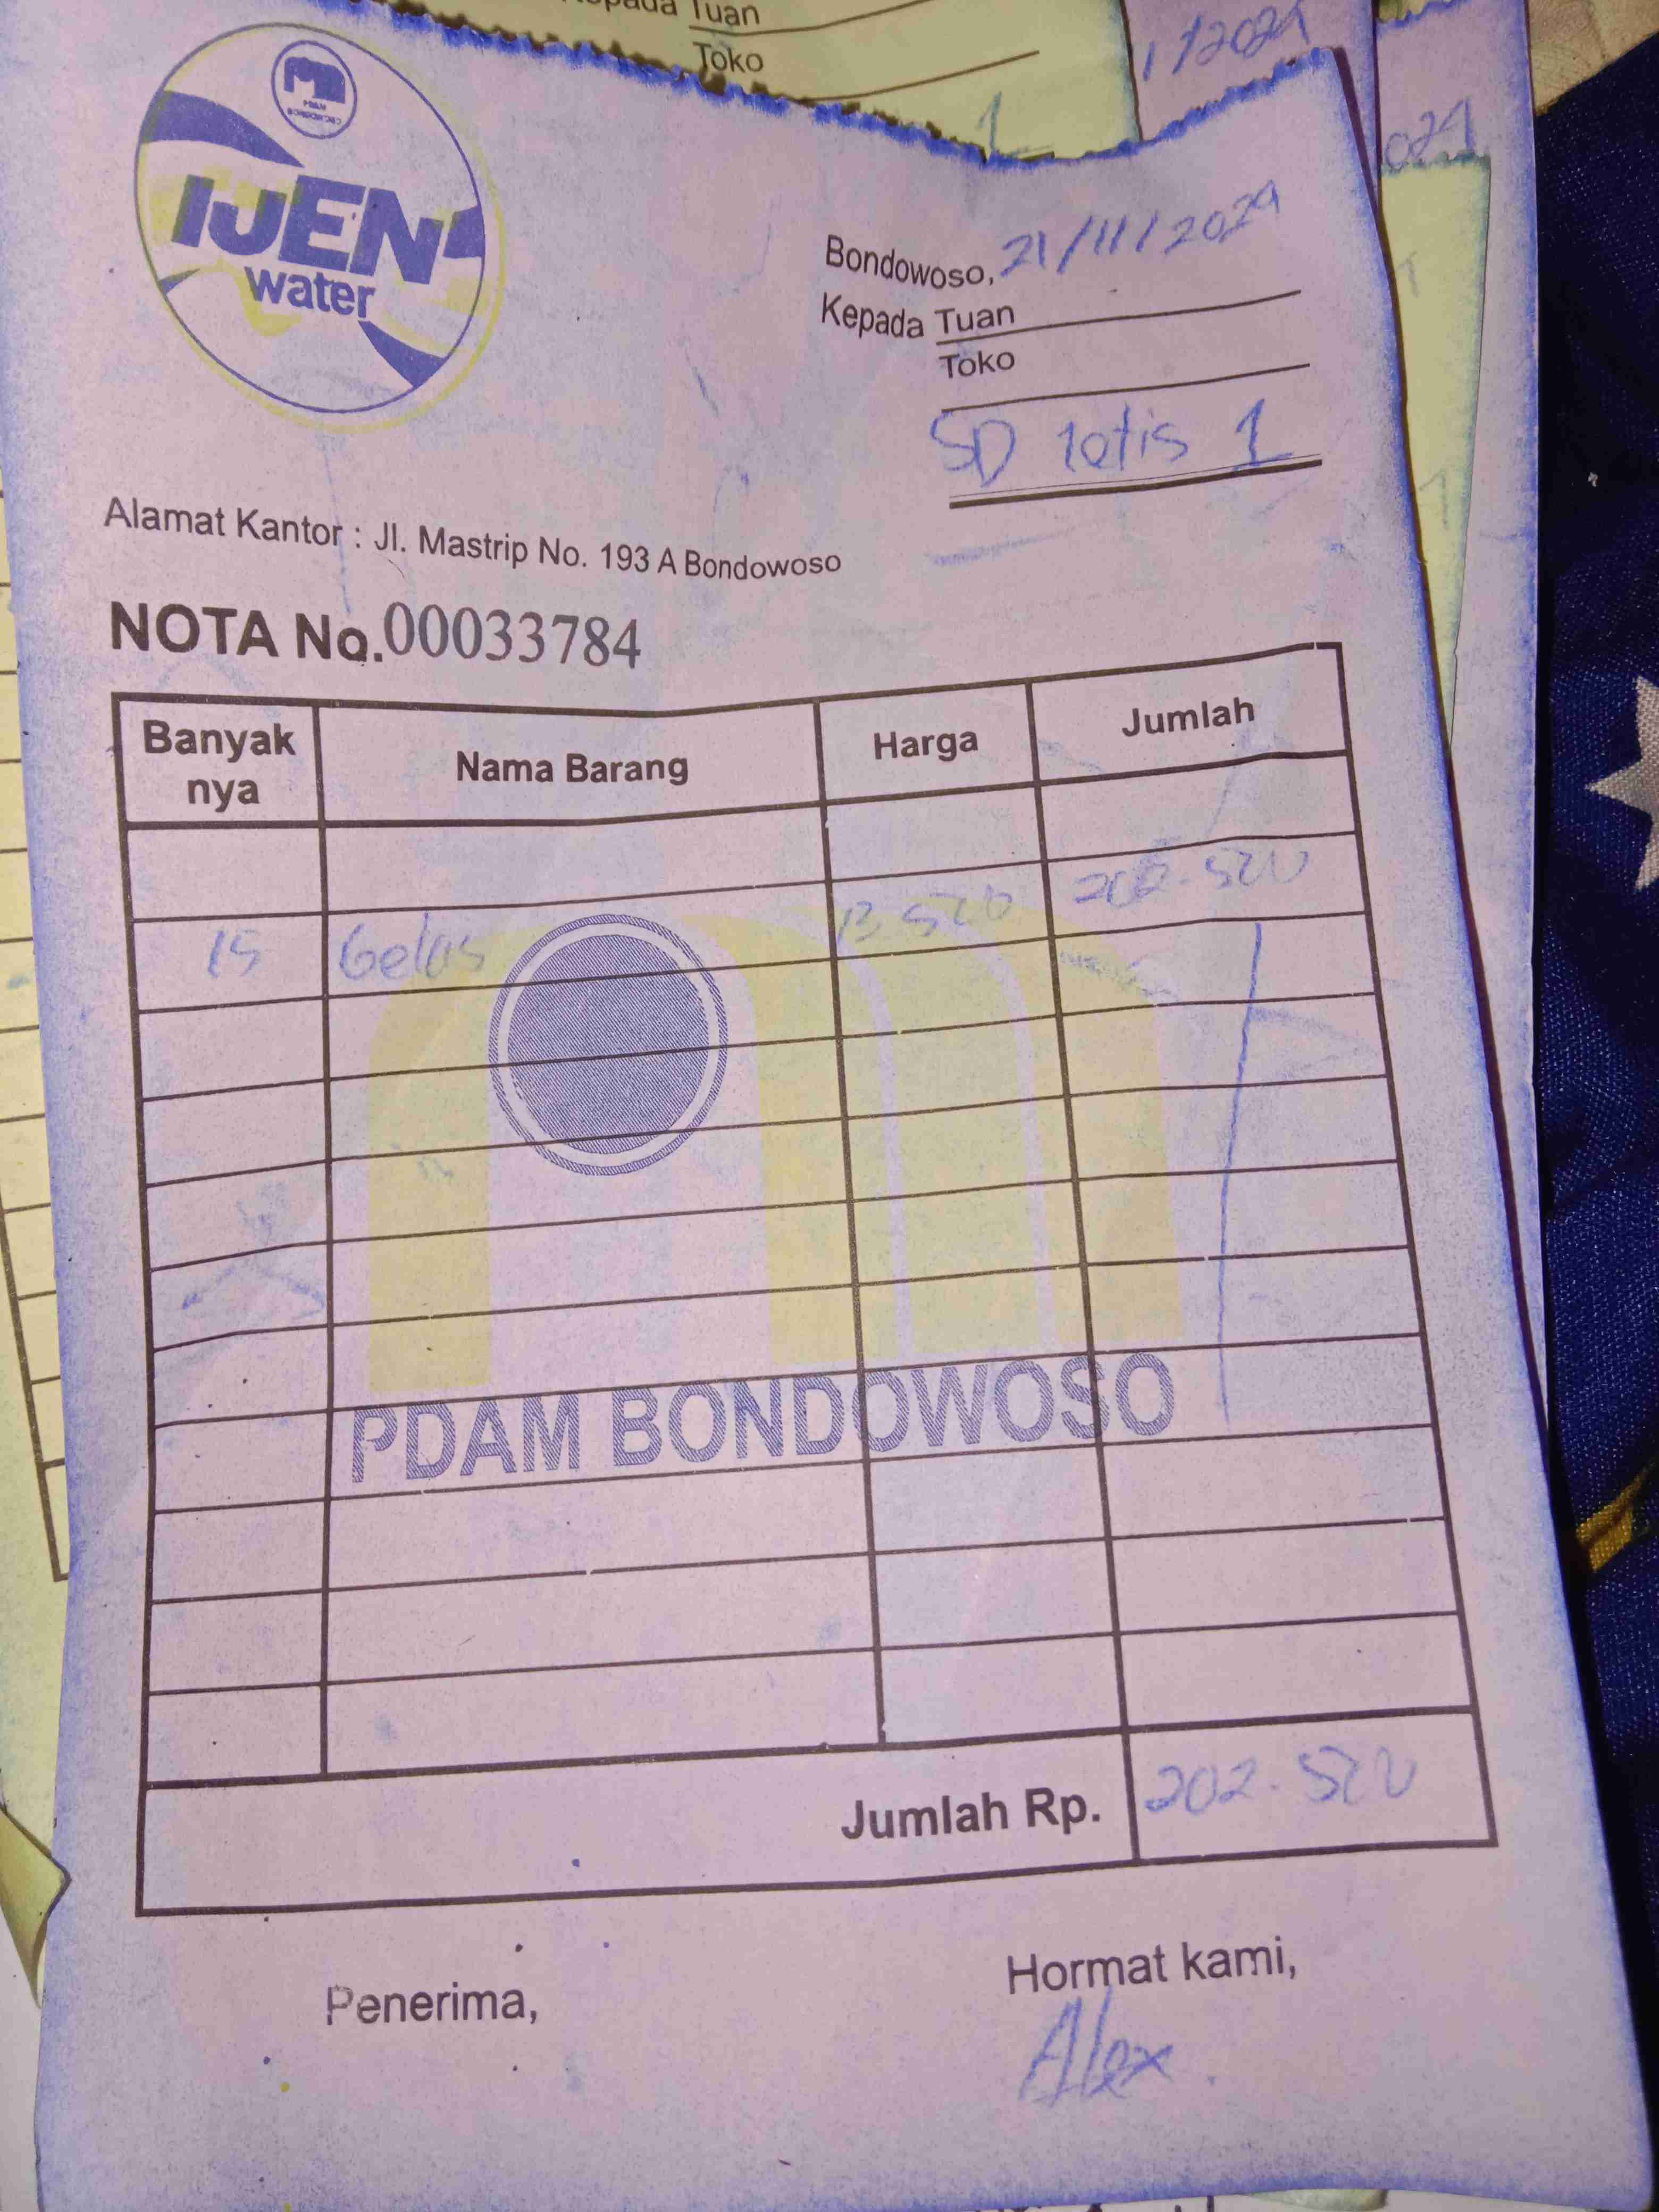 Kepada Tuan
Toko
1
1/2024
024
PDAM
BONDOWOSO
IJEN
water
Bondowoso, 21/11/2024
Kepada Tuan
Toko
SD Totis 1
Alamat Kantor : Jl. Mastrip No. 193 A Bondowoso
NOTA No.00033784
Banyak nya Nama Barang Harga Jumlah
15 Gelas 13.500 202.500
PDAM BONDOWOSO
Jumlah Rp. 202.500
Penerima, Hormat kami,
Alex.